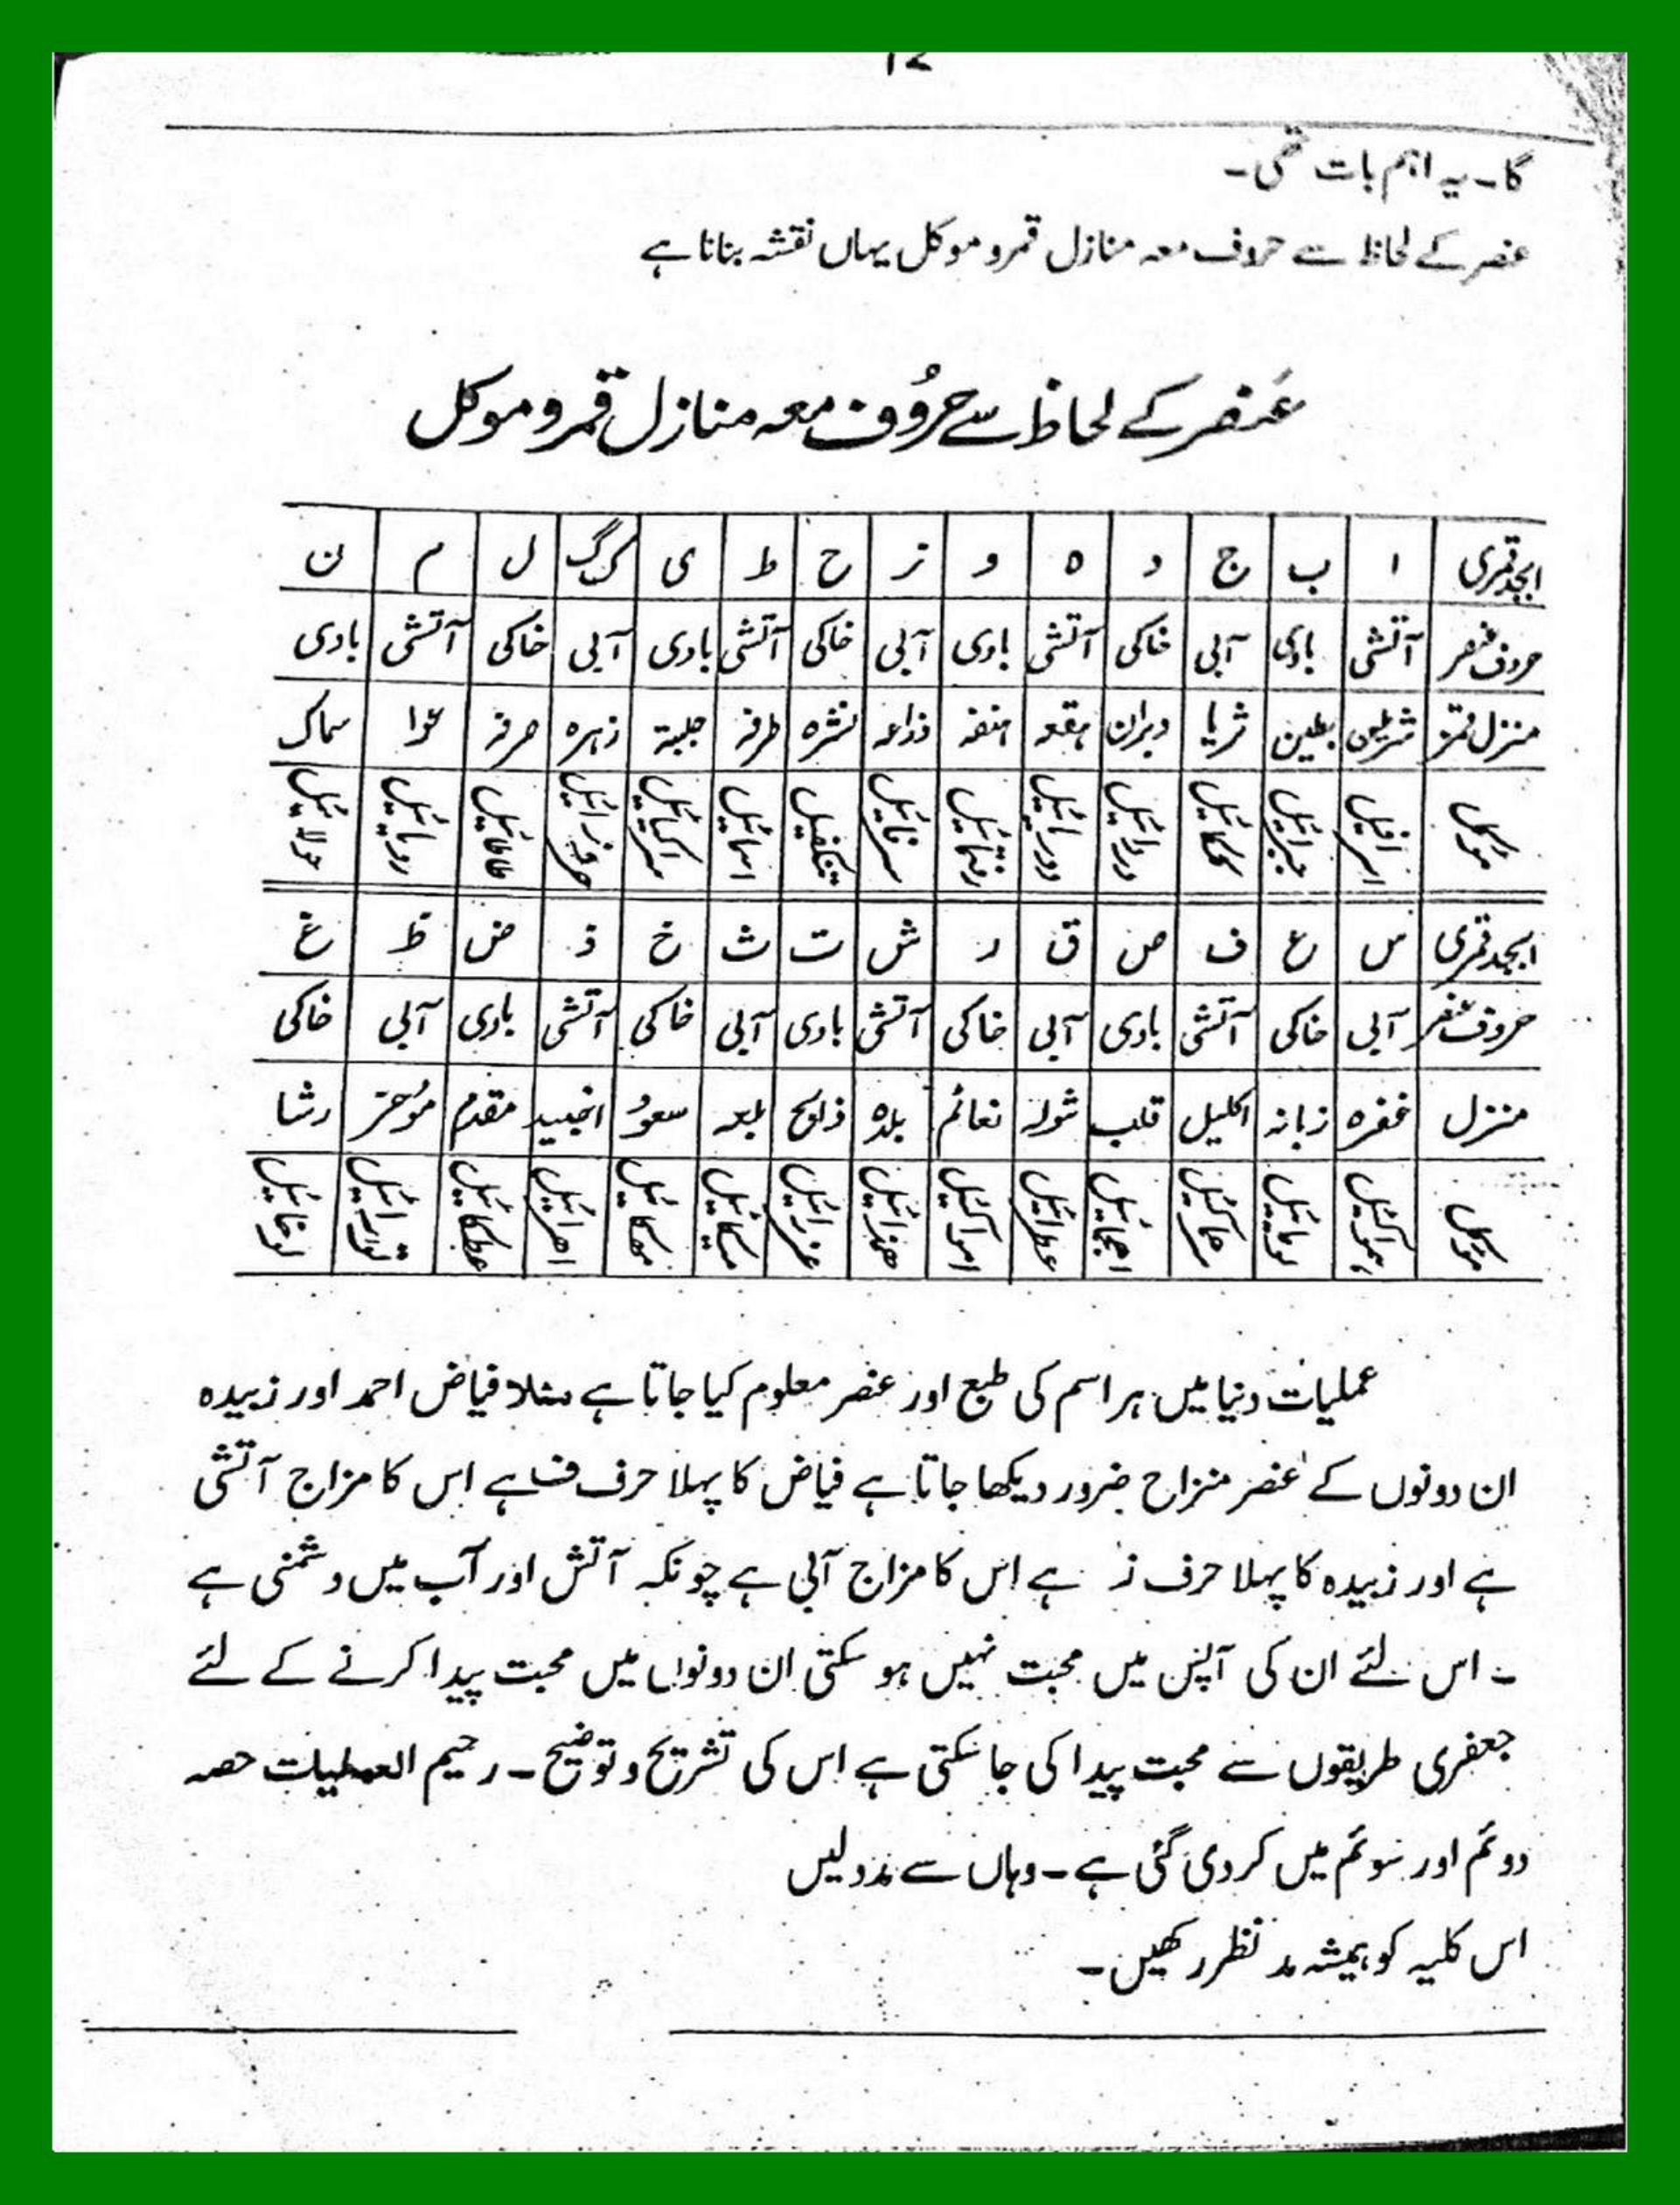 12
گا۔ یہ اہم بات تھی۔
عنصر کے لحاظ سے حروف معہ منازل قمر و موکل یہاں نقشہ بنانا ہے
عنصر کے لحاظ سے حروف معہ منازل قمر و موکل
ابجد قمری ا ب ج د ہ و ز ح ط ی ک گ ل م ن
حروف عنصر آتشی بادی آبی خاکی آتشی بادی آبی خاکی آتشی بادی آبی خاکی آتشی بادی
منزل قمر شرطین بطین ثریا دبران ہقعہ ہنعہ ذراعہ نثرہ طرفہ جبہۃ زہرہ صرفہ عوا سماک
موکل اسرافیل جبرائیل کلکائیل دردائیل دورائیل رفتمائیل سرفائیل تنکفیل اسمائیل سرکیائیل حروزائیل طاطائیل رویائیل حولائیل
ابجد قمری س ع ف ص ق ر ش ت ث خ ذ ض ظ غ
حروف عنصر آبی خاکی آتشی بادی آبی خاکی آتشی بادی آبی خاکی آتشی بادی آبی خاکی
منزل غفرہ زبانہ اکلیل قلب شولہ نعائم بلدہ ذابح بلعہ سعود اخبیہ مقدم مؤخر رشا
موکل ہمواکیل لومائیل سرحماکیل اہجمائیل عطرائیل امواکیل ہمزائیل عزرائیل میکائیل مہکائیل اہرائیل عطکائیل تورائیل لوخائیل
عملیات دنیا میں ہر اسم کی طبع اور عنصر معلوم کیا جاتا ہے مثلا فیاض احمد اور زبیدہ
ان دونوں کے عنصر منزاج ضرور دیکھا جاتا ہے فیاض کا پہلا حرف ف ہے اس کا مزاج آتشی
ہے اور زبیدہ کا پہلا حرف ز ہے اس کا مزاج آبی ہے چونکہ آتش اور آب میں دشمنی ہے
۔ اس لئے ان کی آپس میں محبت نہیں ہو سکتی ان دونوں میں محبت پیدا کرنے کے لئے
جعفری طریقوں سے محبت پیدا کی جا سکتی ہے اس کی تشریح و توضیح۔ رحیم العملیات حصہ
دوئم اور سوئم میں کر دی گئی ہے۔ وہاں سے مدد لیں
اس کلیہ کو ہمیشہ مد نظر رکھیں۔